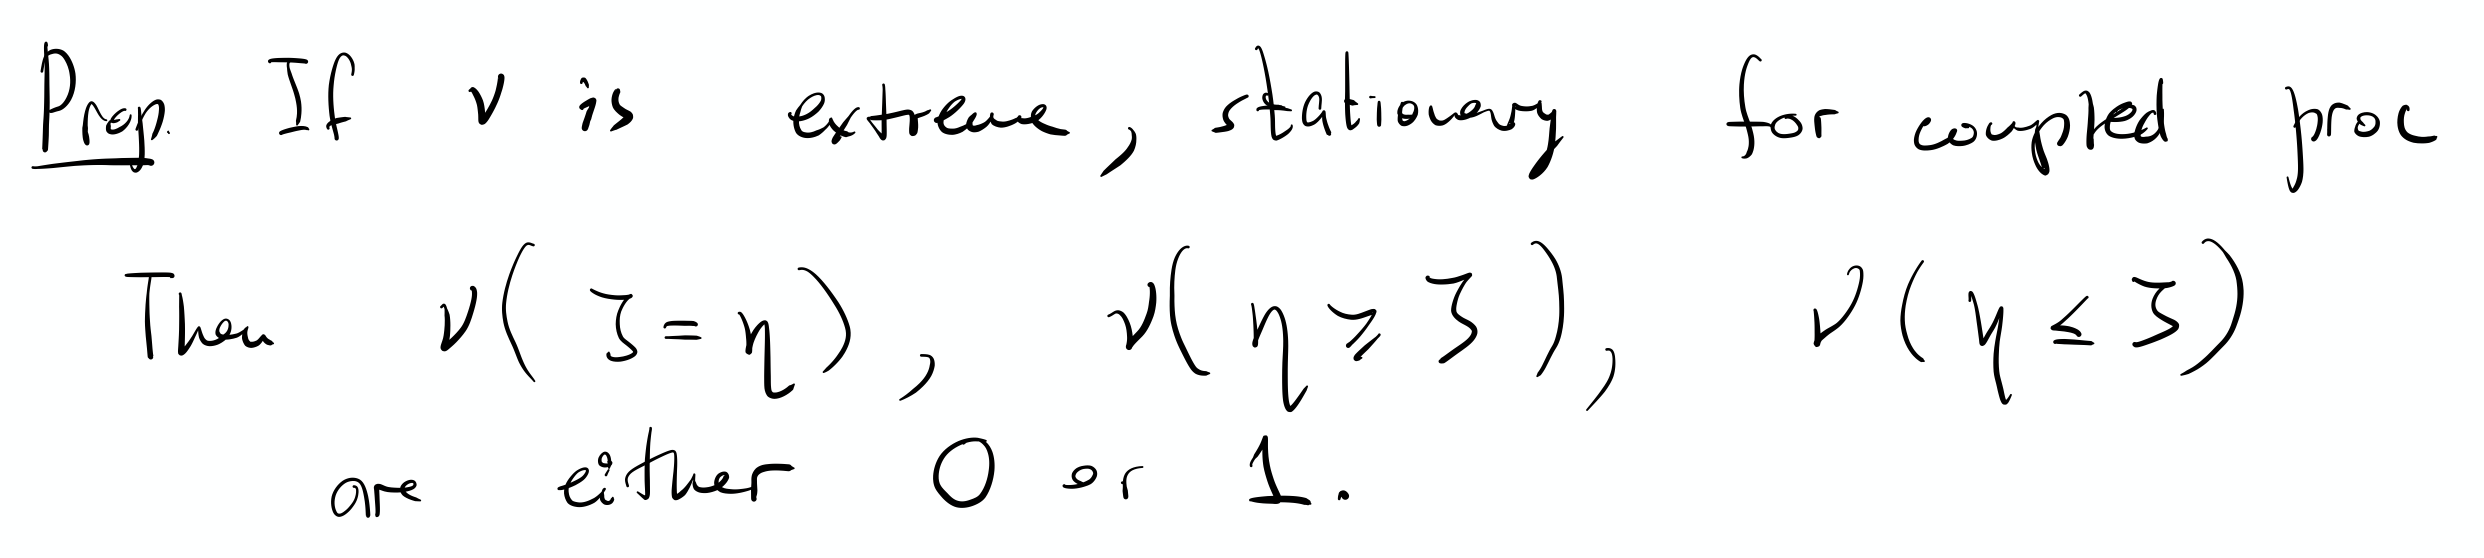 Prop. If ν is extreme, stationary for coupled proc
Then ν( ζ = η ), ν( η ≥ ζ ), ν( η ≤ ζ )
are either 0 or 1.